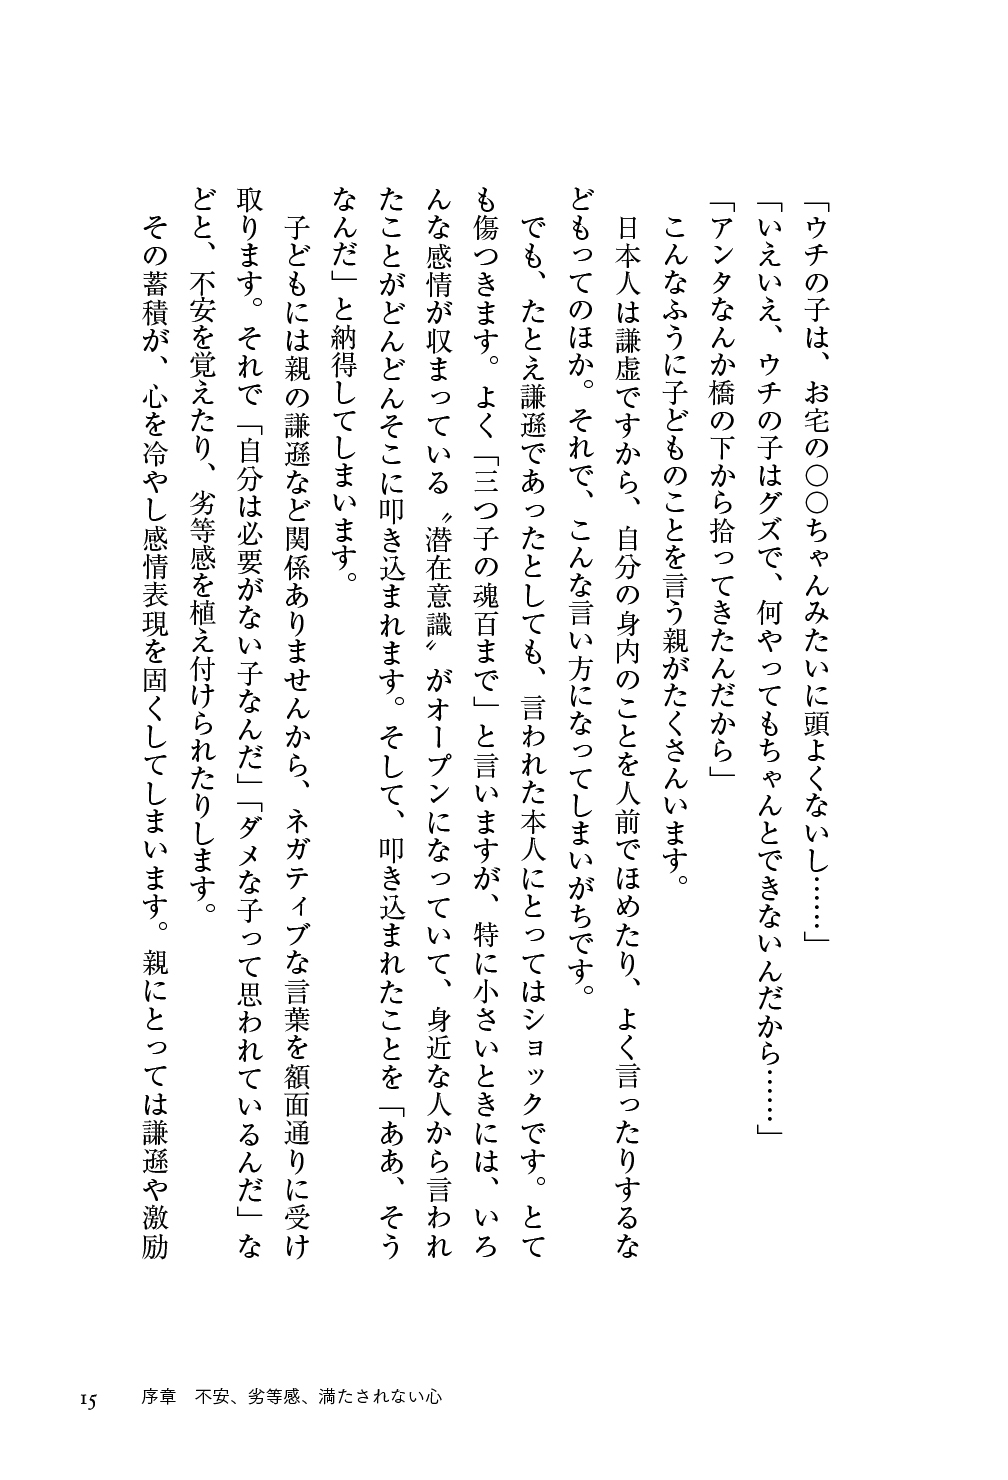 「ウチの子は、お宅の○○ちゃんみたいに頭よくないし……」
「いえいえ、ウチの子はグズで、何やってもちゃんとできないんだから……」
「アンタなんか橋の下から拾ってきたんだから」
こんなふうに子どものことを言う親がたくさんいます。
日本人は謙虚ですから、自分の身内のことを人前でほめたり、よく言ったりするな
どもってのほか。それで、こんな言い方になってしまいがちです。
でも、たとえ謙遜であったとしても、言われた本人にとってはショックです。とて
も傷つきます。よく「三つ子の魂百まで」と言いますが、特に小さいときには、いろ
んな感情が収まっている〝潜在意識〟がオープンになっていて、身近な人から言われ
たことがどんどんそこに叩き込まれます。そして、叩き込まれたことを「ああ、そう
なんだ」と納得してしまいます。
子どもには親の謙遜など関係ありませんから、ネガティブな言葉を額面通りに受け
取ります。それで「自分は必要がない子なんだ」「ダメな子って思われているんだ」な
どと、不安を覚えたり、劣等感を植え付けられたりします。
その蓄積が、心を冷やし感情表現を固くしてしまいます。親にとっては謙遜や激励
15 序章 不安、劣等感、満たされない心